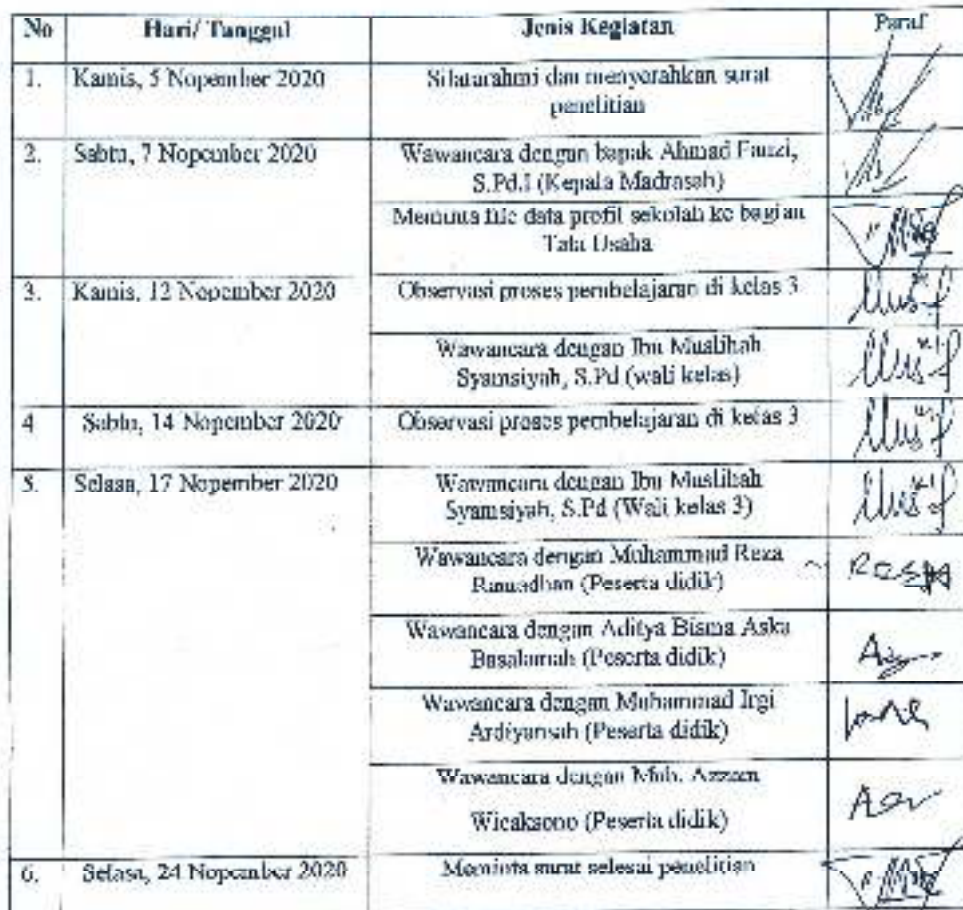 No Hari/ Tanggal Jenis Kegiatan Paraf
1. Kamis, 5 Nopember 2020 Silaturahmi dan menyerahkan surat
penelitian
2. Sabtu, 7 Nopember 2020 Wawancara dengan bapak Ahmad Fauzi,
S.Pd.I (Kepala Madrasah)
Meminta file data profil sekolah ke bagian
Tata Usaha
3. Kamis, 12 Nopember 2020 Observasi proses pembelajaran di kelas 3
Wawancara dengan Ibu Muslihah
Syamsiyah, S.Pd (wali kelas)
4 Sabtu, 14 Nopember 2020 Observasi proses pembelajaran di kelas 3
5. Selasa, 17 Nopember 2020 Wawancara dengan Ibu Muslihah
Syamsiyah, S.Pd (Wali kelas 3)
Wawancara dengan Muhammad Reza
Ramadhan (Peserta didik)
Wawancara dengan Aditya Bisma Aska
Basalamah (Peserta didik)
Wawancara dengan Muhammad Irgi
Ardiyansah (Peserta didik)
Wawancara dengan Muh. Azzam
Wicaksono (Peserta didik)
6. Selasa, 24 Nopember 2020 Meminta surat selesai penelitian